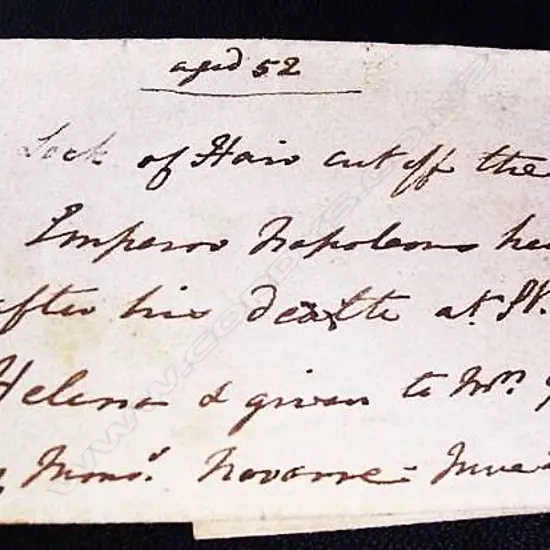 aged 52
Lock of Hair cut off the
Emperor Napoleons hea
after his death at St.
Helena & given to Mrs
Mons.r Novarre
www.cordys.co.nz